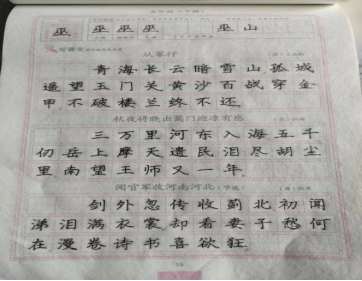 巫 巫 巫 巫 巫 山
从军行
青海长云暗雪山孤城
遥望玉门关黄沙百战穿金
甲不破楼兰终不还
秋夜将晓出篱门迎凉有感
三万里河东入海五千
仞岳上摩天遗民泪尽胡尘
里南望王师又一年
闻官军收河南河北
剑外忽传收蓟北初闻
涕泪满衣裳却看妻子愁何
在漫卷诗书喜欲狂